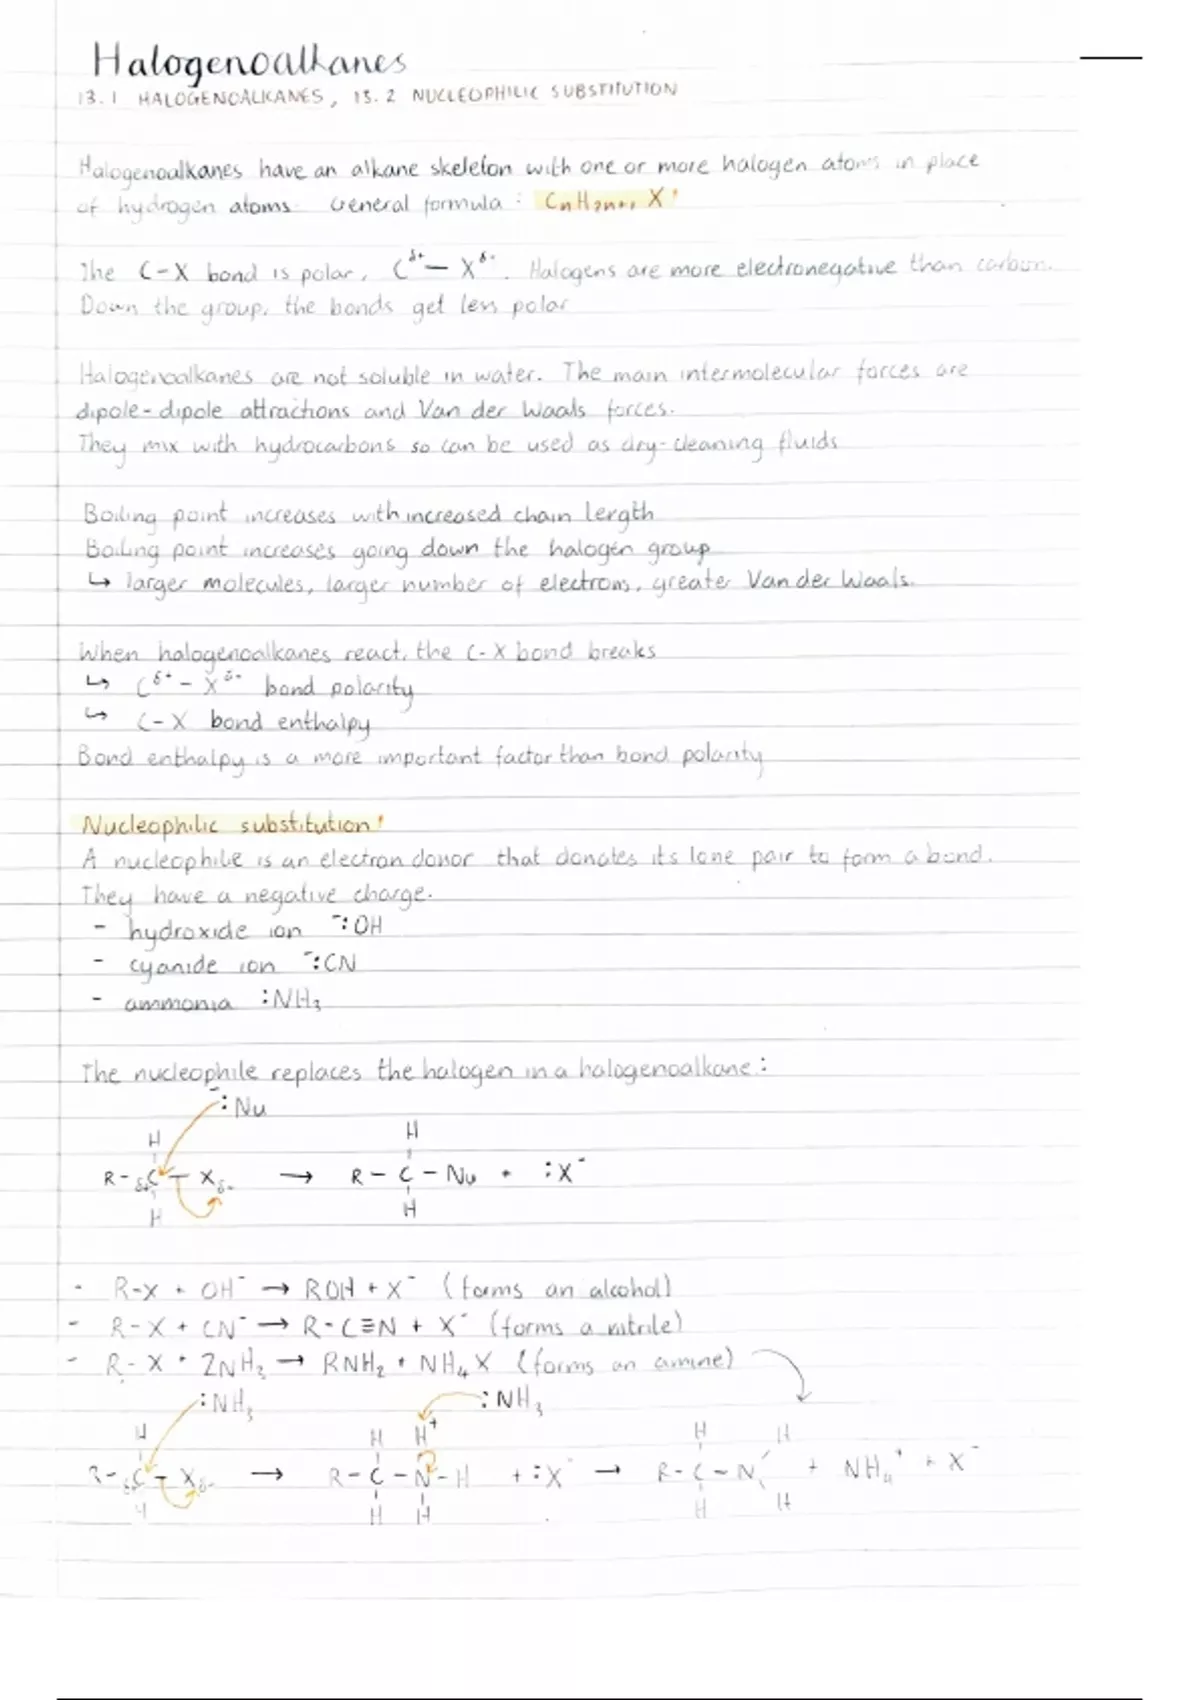 Halogenoalkanes
13.1 HALOGENOALKANES, 13.2 NUCLEOPHILIC SUBSTITUTION
Halogenoalkanes have an alkane skeleton with one or more halogen atoms in place
of hydrogen atoms. General formula : CnH2n+1 X
The C-X bond is polar, Cδ+ — Xδ-. Halogens are more electronegative than carbon.
Down the group, the bonds get less polar
Halogenoalkanes are not soluble in water. The main intermolecular forces are
dipole-dipole attractions and Van der Waals forces.
They mix with hydrocarbons so can be used as dry-cleaning fluids
Boiling point increases with increased chain length
Boiling point increases going down the halogen group
↳ larger molecules, larger number of electrons, greater Van der Waals.
When halogenoalkanes react, the C-X bond breaks
↳ Cδ+ - Xδ- bond polarity
↳ C-X bond enthalpy
Bond enthalpy is a more important factor than bond polarity
Nucleophilic substitution!
A nucleophile is an electron donor that donates its lone pair to form a bond.
They have a negative charge.
- hydroxide ion ⁻:OH
- cyanide ion ⁻:CN
- ammonia :NH₃
The nucleophile replaces the halogen in a halogenoalkane :
⁻:Nu
H H
R - δ+C - Xδ- → R - C - Nu + :X⁻
H H
- R-X + OH⁻ → ROH + X⁻ (forms an alcohol)
- R-X + CN⁻ → R-C≡N + X⁻ (forms a nitrile)
- R-X + 2NH₃ → RNH₂ + NH₄X (forms an amine)
:NH₃ :NH₃
H H H⁺ H H
R - δ+C - Xδ- → R - C - N - H + :X⁻ → R - C - N + NH₄⁺ + X⁻
H H H H H